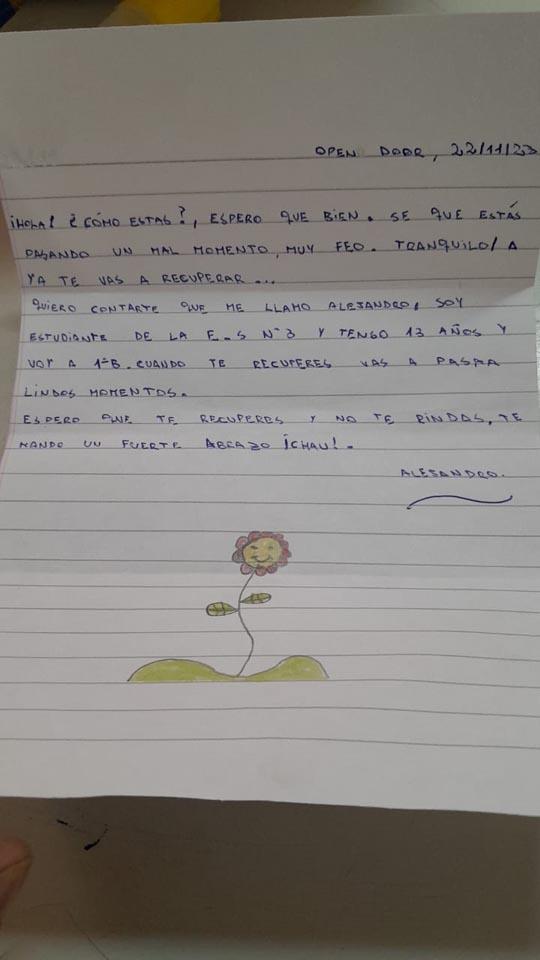 OPEN DOOR, 22/11/23
¡HOLA! ¿CÓMO ESTAS?, ESPERO QUE BIEN. SE QUE ESTÁS
PASANDO UN MAL MOMENTO, MUY FEO. TRANQUILO/A
YA TE VAS A RECUPERAR...
QUIERO CONTARTE QUE ME LLAMO ALEJANDRO, SOY
ESTUDIANTE DE LA E.S N°3 Y TENGO 13 AÑOS Y
VOY A 1°B. CUANDO TE RECUPERES VAS A PASRA
LINDOS MOMENTOS.
ESPERO QUE TE RECUPERES Y NO TE RINDAS, TE
MANDO UN FUERTE ABRAZO ¡CHAU!.
ALEJANDRO.